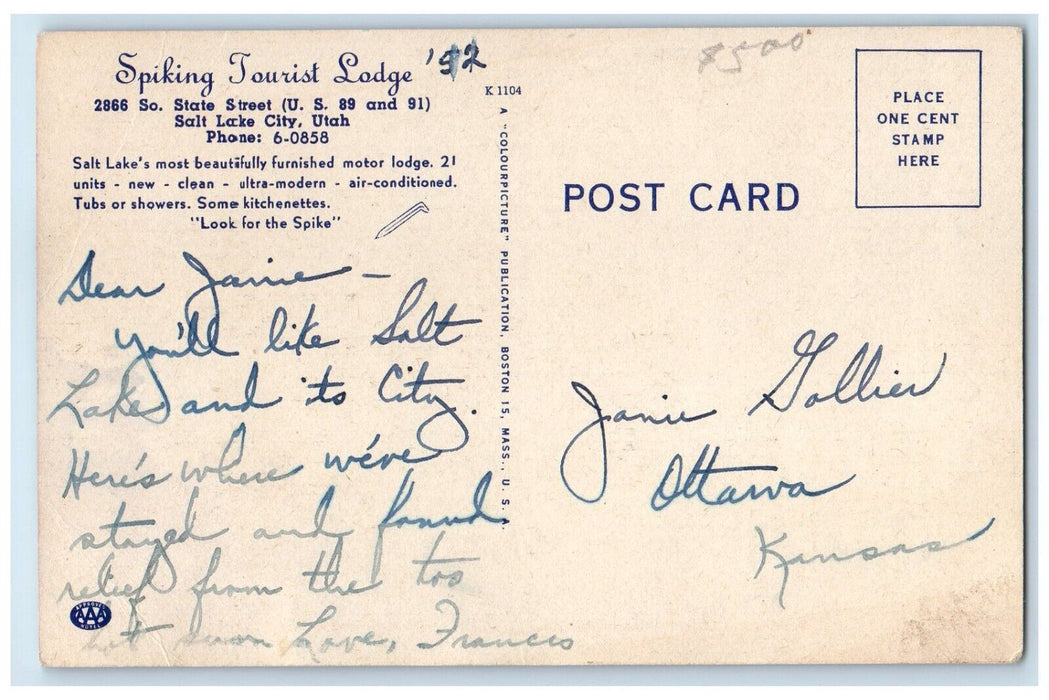 Spiking Tourist Lodge '52
2866 So. State Street (U. S. 89 and 91)
Salt Lake City, Utah
Phone: 6-0858
Salt Lake's most beautifully furnished motor lodge. 21
units - new - clean - ultra-modern - air-conditioned.
Tubs or showers. Some kitchenettes.
"Look for the Spike"
Dear Janie —
you'll like Salt
Lake and its City.
Here's where we've
stayed and found
relief from the too
hot sun Love, Francis
APPROVED
AAA
K 1104
A "COLOURPICTURE" PUBLICATION, BOSTON 15, MASS., U. S. A.
8500
POST CARD
PLACE
ONE CENT
STAMP
HERE
Janie Gollier
Ottawa
Kansas